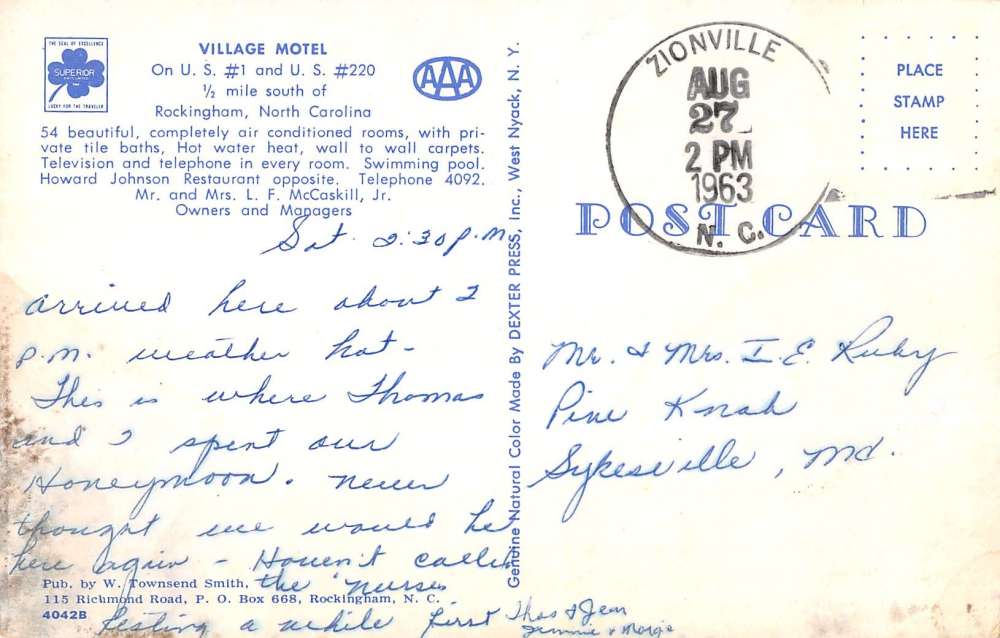 THE SEAL OF EXCELLENCE
SUPERIOR
LUCKY FOR THE TRAVELER
VILLAGE MOTEL
On U. S. #1 and U. S. #220
½ mile south of
Rockingham, North Carolina
AAA
54 beautiful, completely air conditioned rooms, with pri-
vate tile baths, Hot water heat, wall to wall carpets.
Television and telephone in every room. Swimming pool.
Howard Johnson Restaurant opposite. Telephone 4092.
Mr. and Mrs. L. F. McCaskill, Jr.
Owners and Managers
Sat. 2:30 p.m.
arrived here about 2
p.m. weather hot -
This is where Thomas
and I spent our
Honeymoon. never
thought we would be
here again - Haven't called
the nurses
Resting a while first
Thos & Jean
Jimmie & Margie
Pub. by W. Townsend Smith,
115 Richmond Road, P. O. Box 668, Rockingham, N. C.
4042B
Genuine Natural Color Made By DEXTER PRESS, Inc., West Nyack, N. Y.
ZIONVILLE
AUG
27
2 PM
1963
N. C.
PLACE
STAMP
HERE
POST CARD
Mr. & Mrs. I. E. Ruby
Pine Knob
Sykesville, Md.